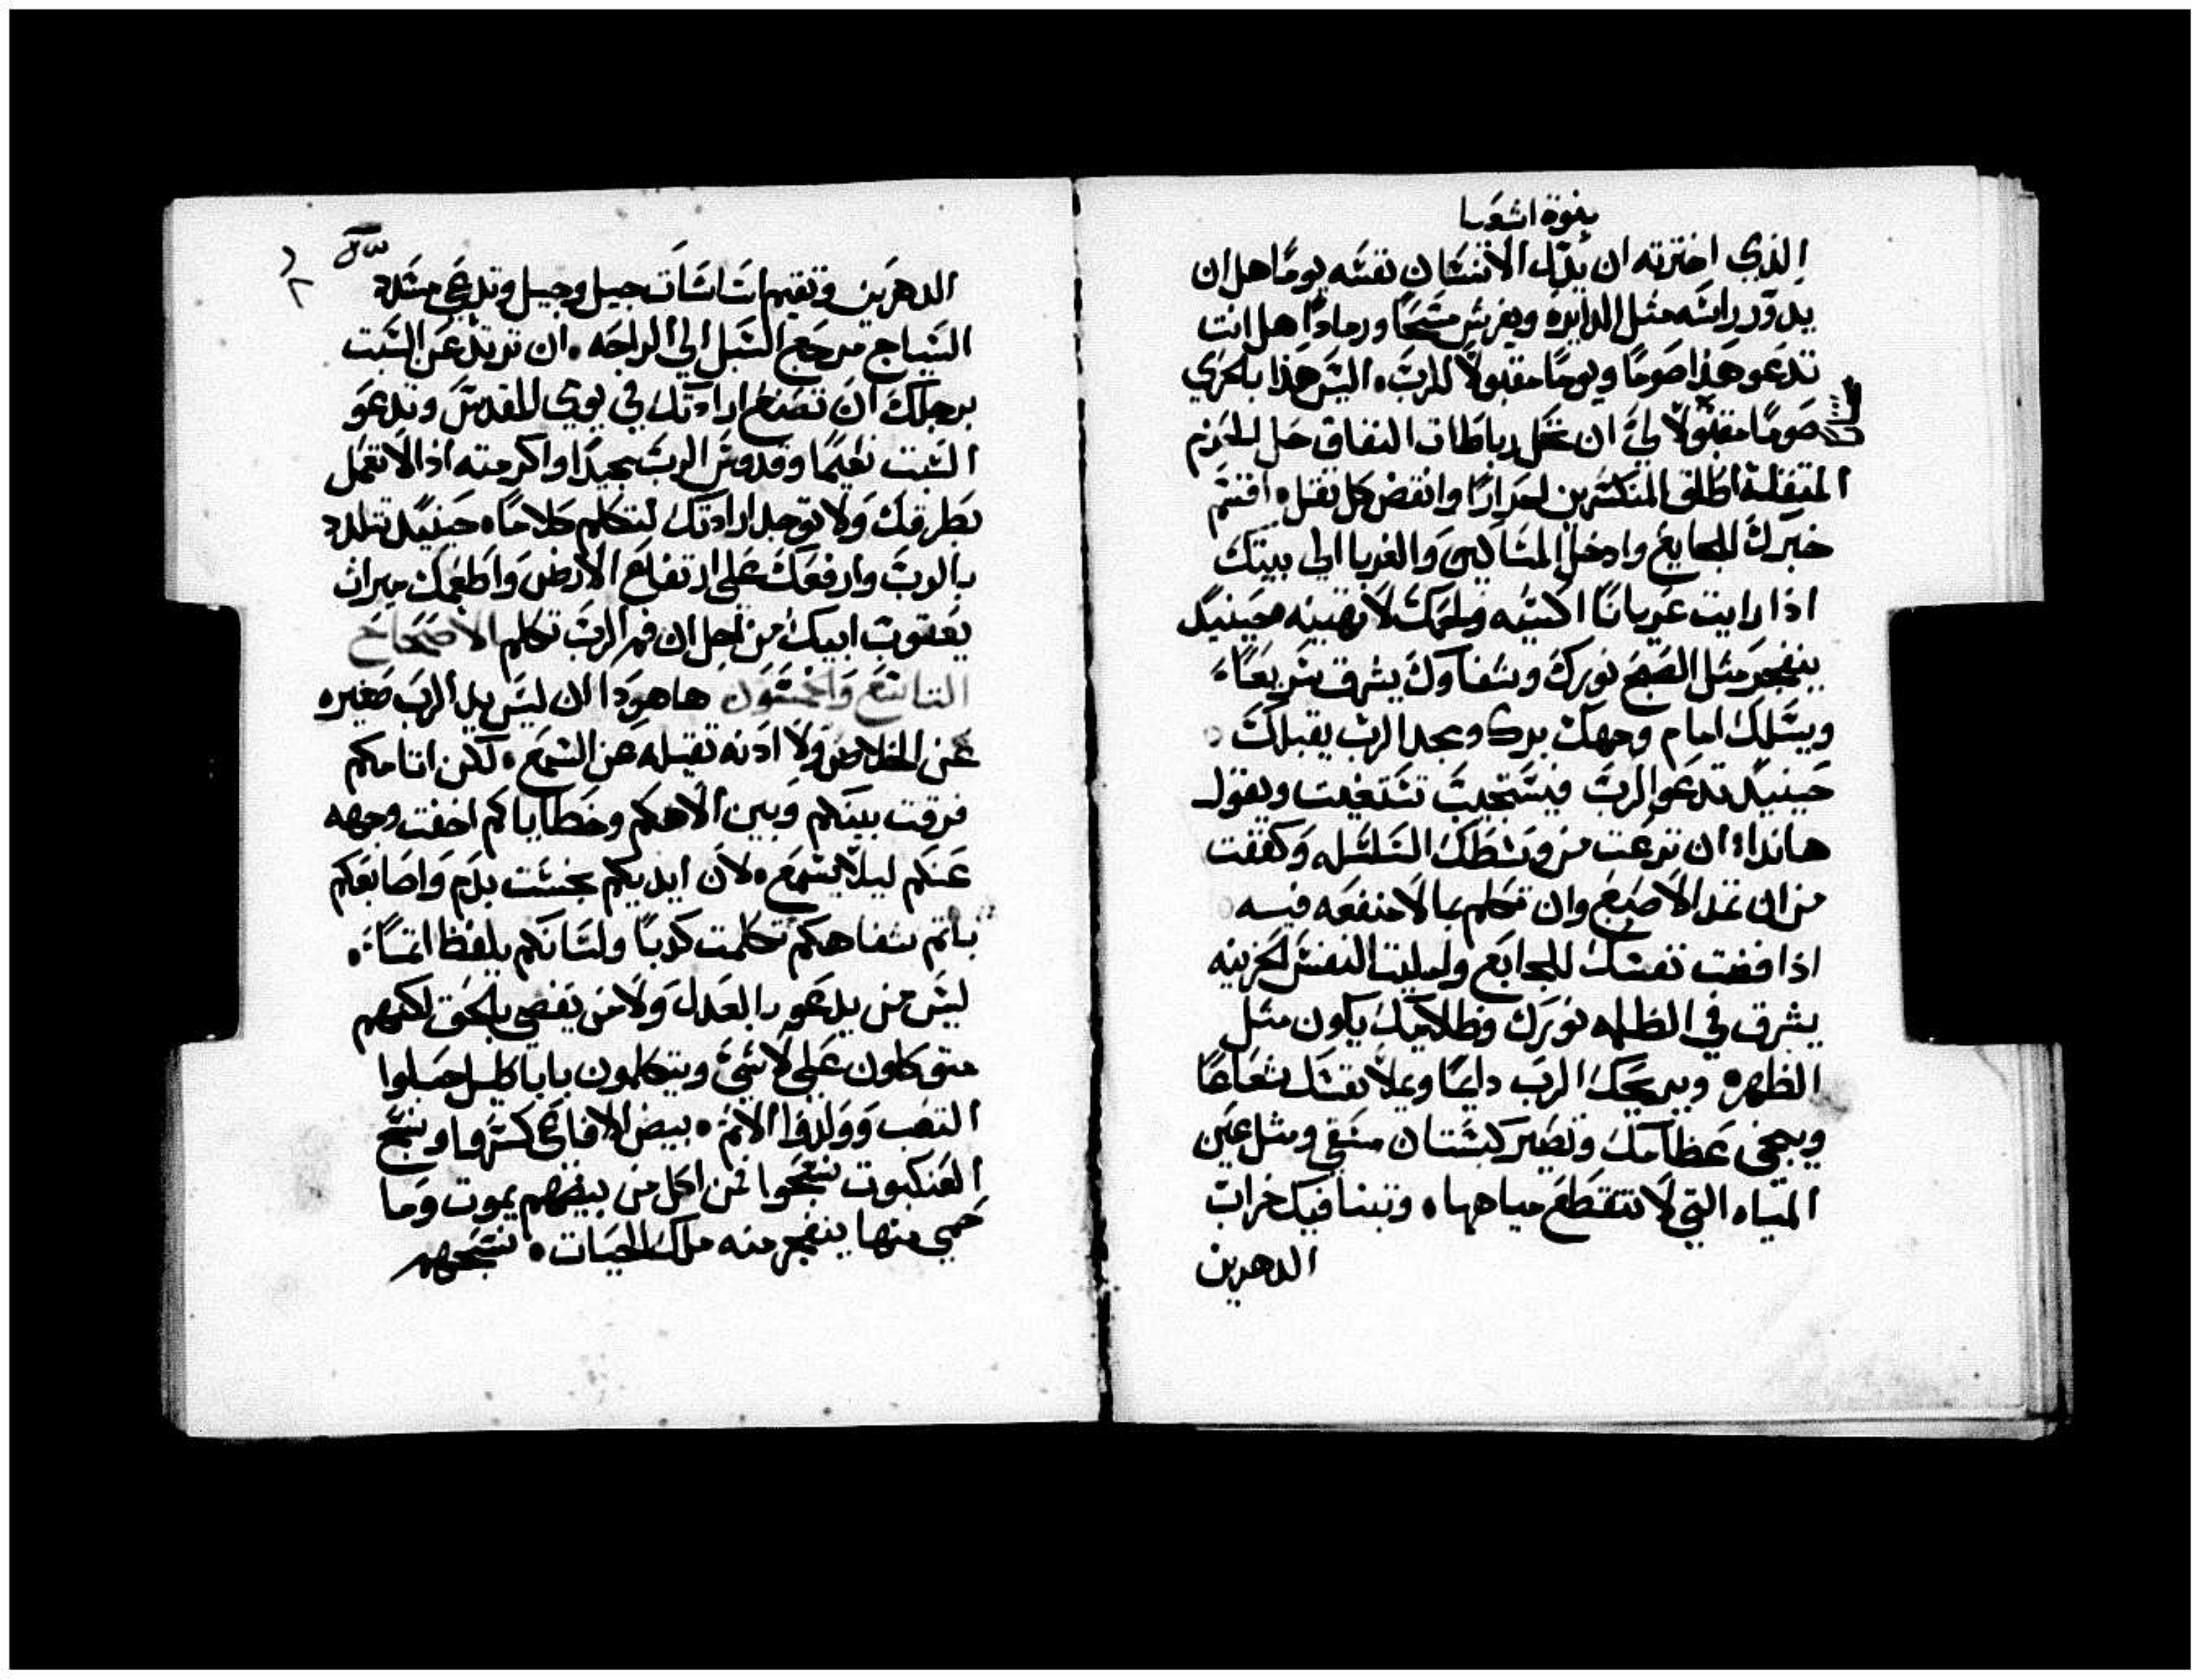 بنوة اشعيا
الذي اخترته ان يذلل الانسان نفسه يوما هل ان
يدور راسه مثل الدايره ويفرش مسحا ورمادا هل انت
تدعو هذا صوما ويوما مقبولا للرب، اليس هذا بالحري
صوما مقبولا لي ان تحل رباطات النفاق حل الحزم
المتقله اطلق المنكسرين احرارا وانقض كل ثقل، اقسم
خبزك للجايع وادخل المساكين والغربا الى بيتك
اذا رايت عريانا اكسيه ولحمك لا تهينه حينيد
ينفجر مثل الصبح نورك وشفاوك يشرق سريعا،
ويسلك امام وجهك برك ومجد الرب يقبلك
حينيد تدعو الرب فيستجيب تستغيث ويقول
هانذا ان نزعت من وسطك السلسله وكففت
من ان تمد الاصبع وان تتكلم بما لا منفعه فيه
اذا فضت نفسك للجايع وامليت النفس الحزينه
يشرق في الظلمه نورك وظلامك يكون مثل
الظهره ويريحك الرب دايما ويملا نفسك شعاعا
وينجي عظامك وتصير كبستان مسقي ومثل عين
المياه التي لا تنقطع مياهها، وتبنا فيك خراب
الدهرين
الدهرين وتقيم اساسات جيل وجيل وتدعى مشدد
السياج مرجع السبل الي الراحه، ان تريد عن السبت
برجلك ان تصنع ارادتك في يومي المقدس وتدعو
السبت نعيما وقدوس الرب مجيدا واكرمته اذ لا تعمل
بطرقك ولا توجد ارادتك لتتكلم كلاما، حينيد تتلدد
بالرب وارفعك على ارتفاع الارض واطعمك ميراث
يعقوب ابيك من اجل ان فم الرب تكلم الاصحاح
التاسع والخمسون هاهوذا ان ليس يد الرب صغيره
عن الخلاص ولا ادنه تقيله عن السمع، لكن اتامكم
فرقت بينكم وبين الاهكم وخطاياكم اخفت وجهه
عنكم ليلا يسمع، لان ايديكم نجست بدم واصابعكم
باتم شفاهكم تكلمت كدبا ولسانكم يلفظ اتما،
ليس من يدعو بالعدل ولا من يقضي بالحق لكنهم
متوكلون على لا شي ويتكلمون باباطيل حبلوا
التعب وولدوا الاثم، بيض الافاعي كسروا ونسج
العنكبوت نسجوا من اكل من بيضهم يموت وما
حمي منها ينفجر منه ملك الحيات، نسجهم